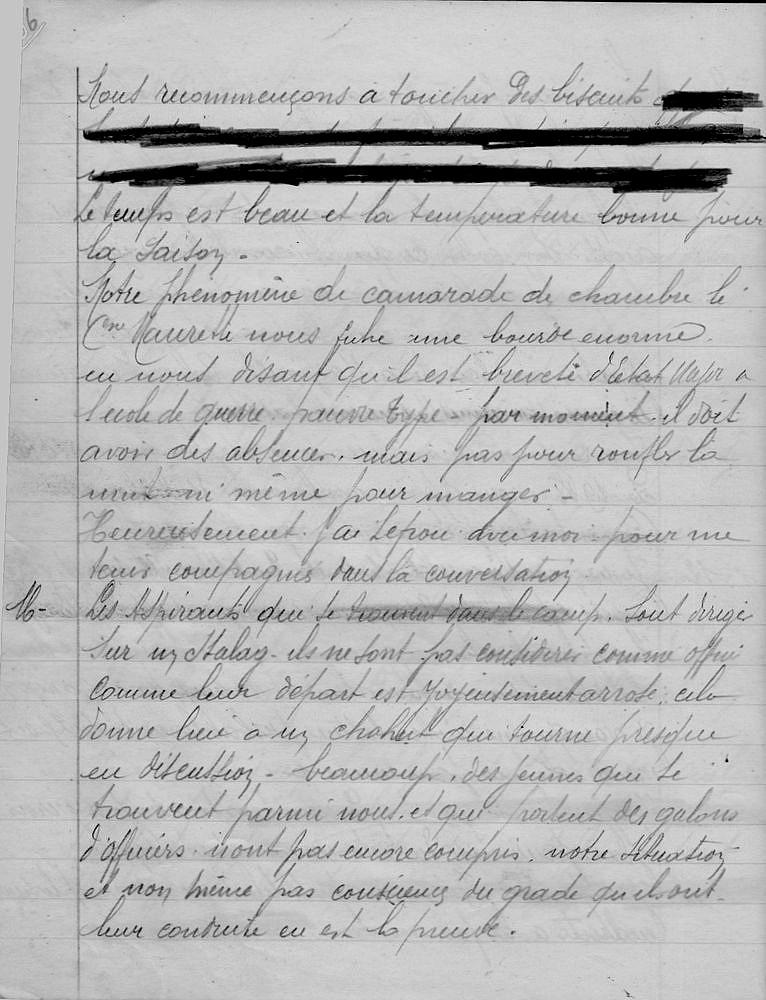 Nous recommençons a toucher des biscuits
Le temps est beau et la temperature bonne pour
la saison -
Notre phénomène de camarade de chambre le
Cne nous une bourde enorme.
en nous disant qu'il est breveté d'Etat Major a
l'ecole de guerre, pauvre type - par moment il doit
avoir des absences. mais pas pour ronfler la
nuit - ni même pour manger -
Heureusement j'ai avec moi pour me
tenir compagnie dans la conversation
16 - Les Aspirants qui se trouvent dans le camp. sont dirigés
sur un Stalag - ils ne sont pas considérés comme offici
comme leur départ est joyeusement arrosé, cela
donne lieu a un chahut qui tourne presque
en discussion - beaucoup, des jeunes qui se
trouvent parmi nous. et qui portent des galons
d'officiers n'ont pas encore compris. notre situation
et non même pas conscience du grade qu'ils ont -
leur conduite en est la preuve.